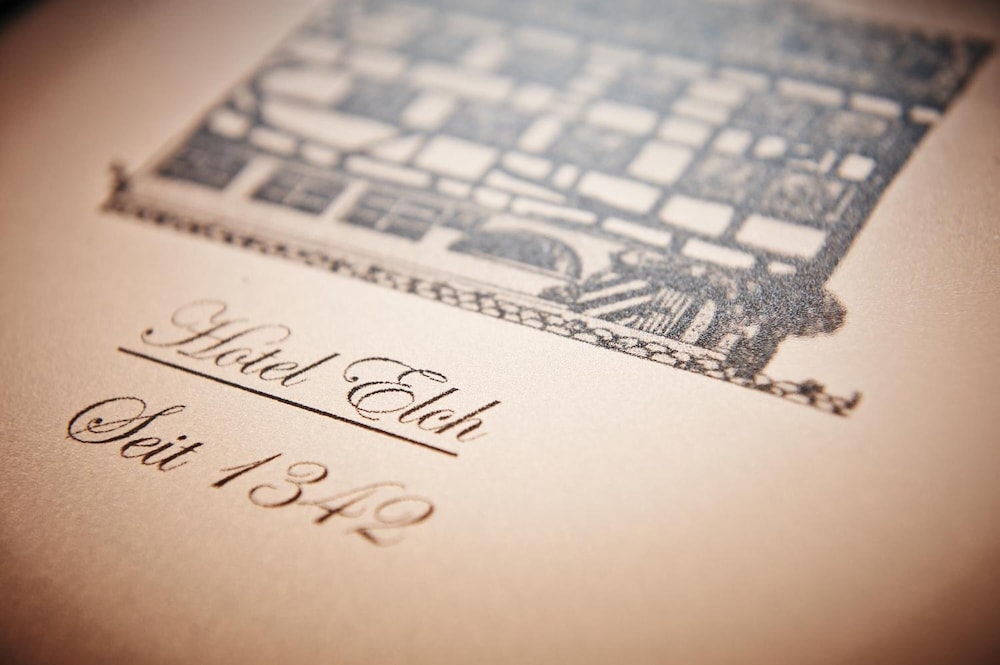 Hotel Elch
Seit 1342